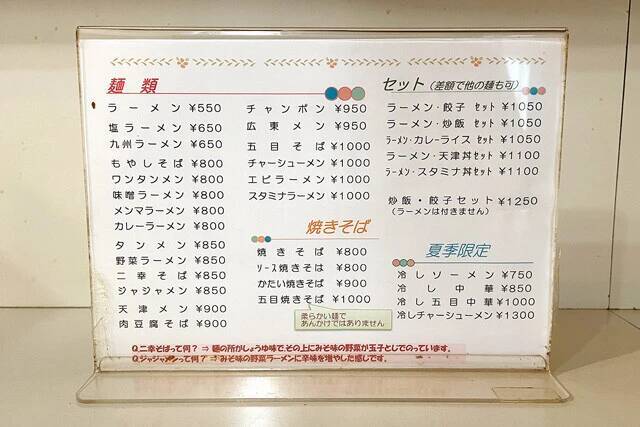 麺類
ラーメン ¥550
塩ラーメン ¥650
九州ラーメン ¥650
もやしそば ¥800
ワンタンメン ¥800
味噌ラーメン ¥800
メンマラーメン ¥800
カレーラーメン ¥800
タンメン ¥850
野菜ラーメン ¥850
二幸そば ¥850
ジャジャメン ¥850
天津メン ¥900
肉豆腐そば ¥900
チャンポン ¥950
広東メン ¥950
五目そば ¥1000
チャーシューメン ¥1000
エビラーメン ¥1000
スタミナラーメン ¥1000
焼きそば
焼きそば ¥800
ソース焼きそば ¥800
かたい焼きそば ¥900
五目焼きそば ¥1000
柔らかい麺で
あんかけではありません
セット(差額で他の麺も可)
ラーメン・餃子 セット ¥1050
ラーメン・炒飯 セット ¥1050
ラーメン・カレーライス セット ¥1050
ラーメン・天津丼セット ¥1100
ラーメン・スタミナ丼セット ¥1100
炒飯・餃子セット ¥1250
(ラーメンは付きません)
夏季限定
冷しソーメン ¥750
冷し中華 ¥850
冷し五目中華 ¥1000
冷しチャーシューメン ¥1300
Q.二幸そばって何? ⇒ 麺の所がしょうゆ味で、その上にみそ味の野菜が玉子としでのっています。
Q.ジャジャメンって何? ⇒ みそ味の野菜ラーメンに辛味を増やした感じです。